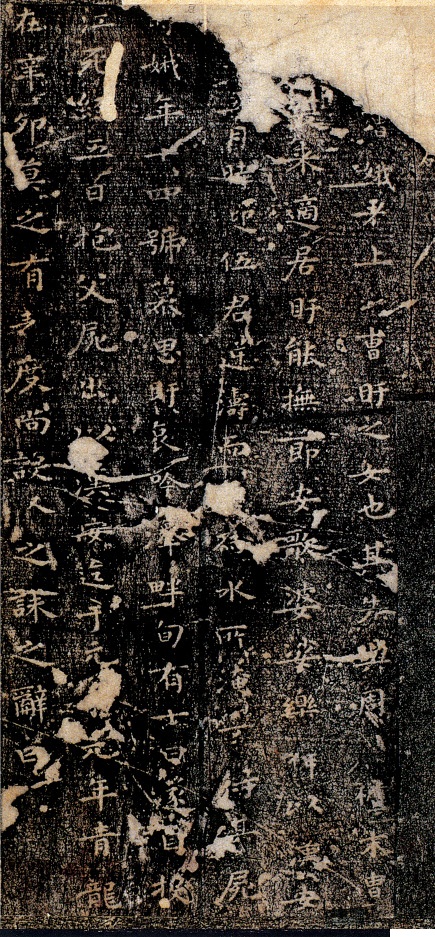 娥者上曹盱之女也其先與周末胄
來適居盱能撫節安歌婆娑樂神以漢安
月時迎伍君逆濤而為水所淹不得屍
娥年十四號慕思盱哀吟澤畔旬有七日遂自投
江死經五日抱父屍出以漢安迄于元元年青龍
在辛卯莫之有表度尚設之誄之辭曰